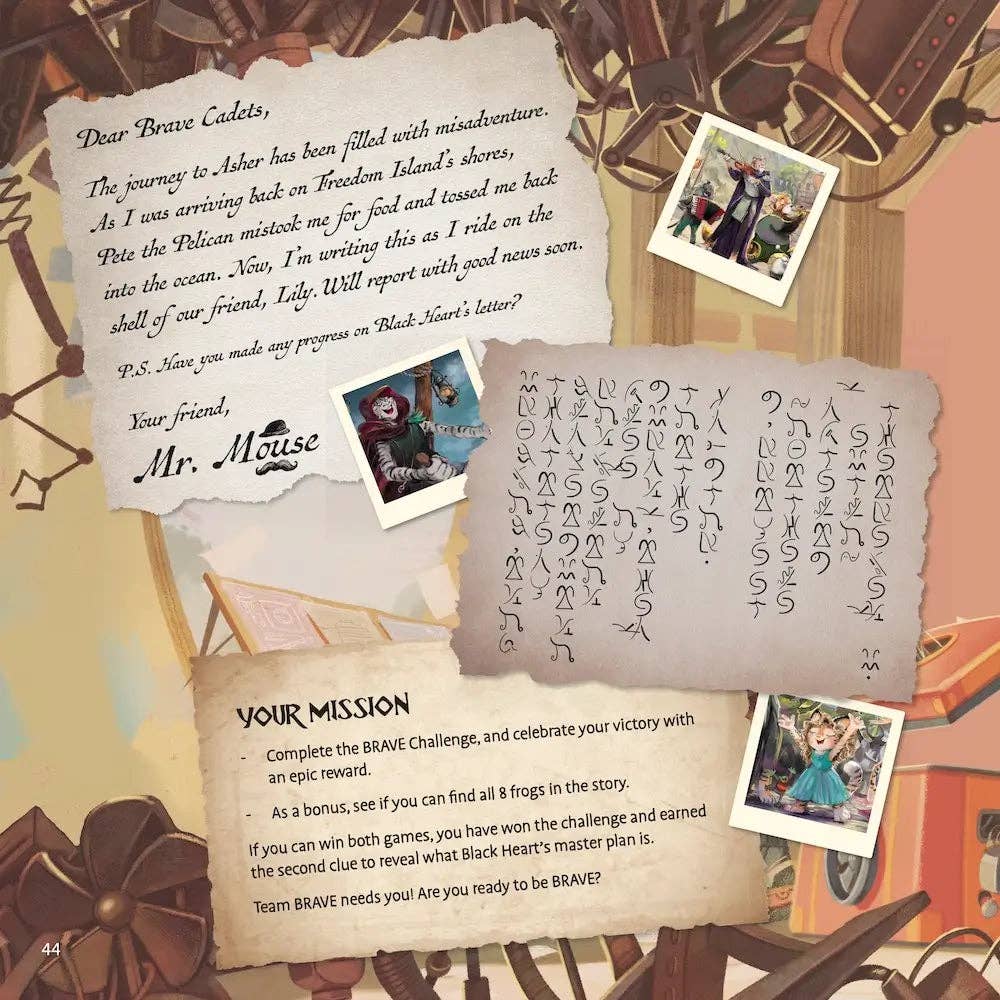 Dear Brave Cadets,
The journey to Asher has been filled with misadventure.
As I was arriving back on Freedom Island's shores,
Pete the Pelican mistook me for food and tossed me back
into the ocean. Now, I'm writing this as I ride on the
shell of our friend, Lily. Will report with good news soon.
P.S. Have you made any progress on Black Heart's letter?
Your friend,
Mr. Mouse
YOUR MISSION
- Complete the BRAVE Challenge, and celebrate your victory with
an epic reward.
- As a bonus, see if you can find all 8 frogs in the story.
If you can win both games, you have won the challenge and earned
the second clue to reveal what Black Heart's master plan is.
Team BRAVE needs you! Are you ready to be BRAVE?
44